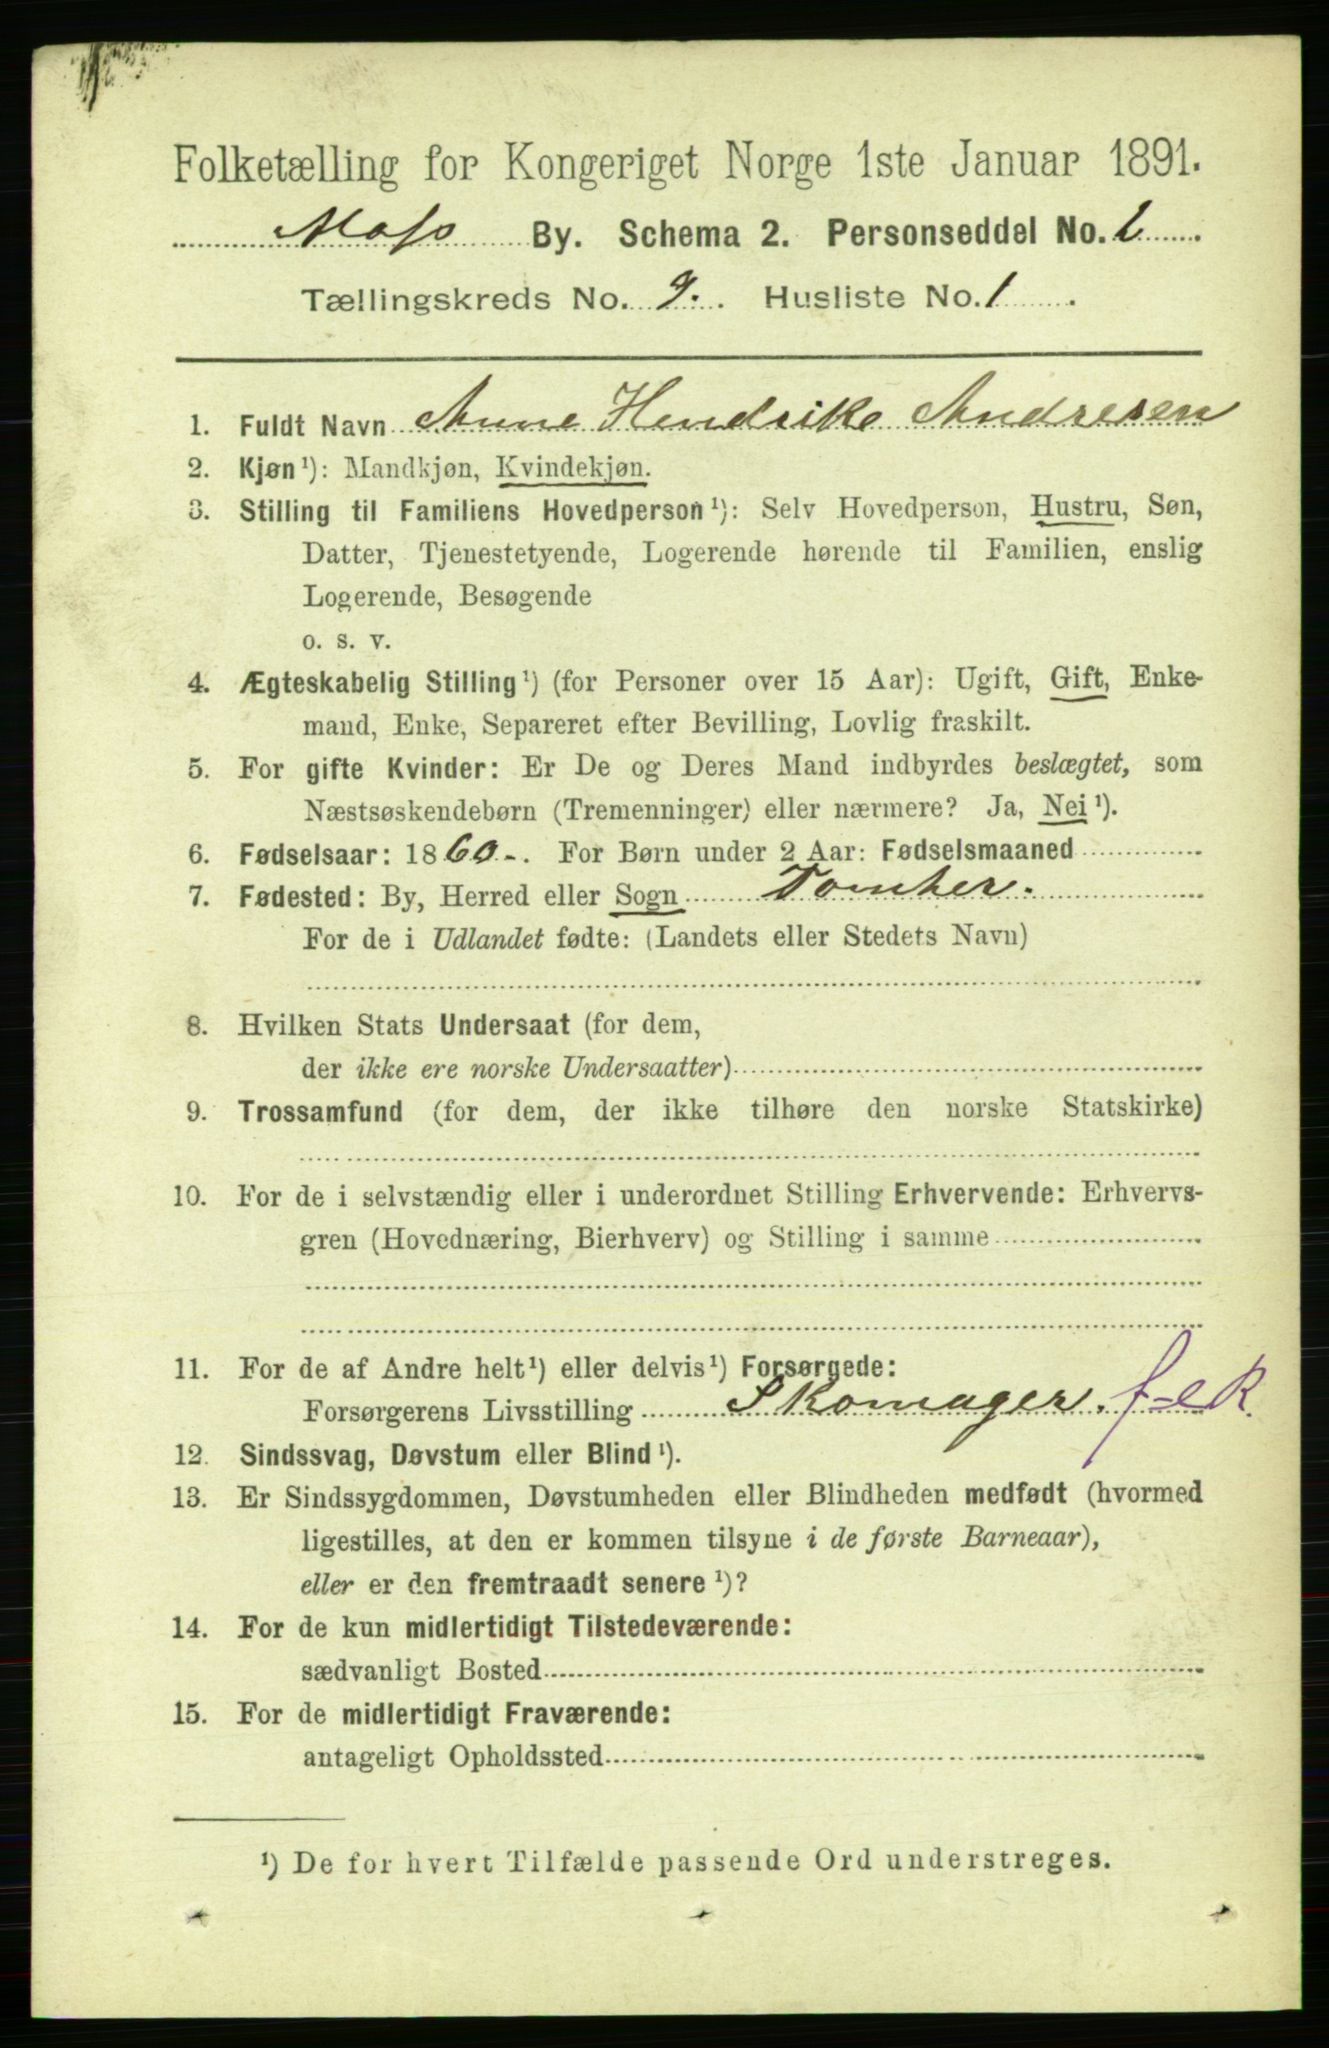 Folketælling for Kongeriget Norge 1ste Januar 1891.
Moss By. Schema 2. Personseddel No. 2
Tællingskreds No. 9. Husliste No. 1
1. Fuldt Navn Anne Hendrike Andresen
2. Kjøn ¹): Mandkjøn, Kvindekjøn.
3. Stilling til Familiens Hovedperson ¹): Selv Hovedperson, Hustru, Søn,
Datter, Tjenestetyende, Logerende hørende til Familien, enslig
Logerende, Besøgende
o. s. v.
4. Ægteskabelig Stilling ¹) (for Personer over 15 Aar): Ugift, Gift, Enke-
mand, Enke, Separeret efter Bevilling, Lovlig fraskilt.
5. For gifte Kvinder: Er De og Deres Mand indbyrdes beslægtet, som
Næstsøskendebørn (Tremenninger) eller nærmere? Ja, Nei ¹).
6. Fødselsaar: 1860-. For Børn under 2 Aar: Fødselsmaaned
7. Fødested: By, Herred eller Sogn Tomter.
For de i Udlandet fødte: (Landets eller Stedets Navn)
8. Hvilken Stats Undersaat (for dem,
der ikke ere norske Undersaatter)
9. Trossamfund (for dem, der ikke tilhøre den norske Statskirke)
10. For de i selvstændig eller i underordnet Stilling Erhvervende: Erhvervs-
gren (Hovednæring, Bierhverv) og Stilling i samme
11. For de af Andre helt ¹) eller delvis ¹) Forsørgede:
Forsørgerens Livsstilling Skomager.
12. Sindssvag, Døvstum eller Blind ¹).
13. Er Sindssygdommen, Døvstumheden eller Blindheden medfødt (hvormed
ligestilles, at den er kommen tilsyne i de første Barneaar),
eller er den fremtraadt senere ¹)?
14. For de kun midlertidigt Tilstedeværende:
sædvanligt Bosted
15. For de midlertidigt Fraværende:
antageligt Opholdssted
¹) De for hvert Tilfælde passende Ord understreges.